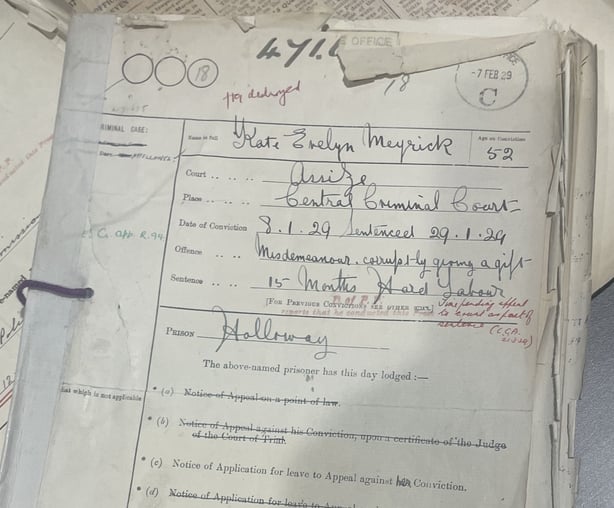 OFFICE
-7 FEB 29
C
18
18
RIMINAL CASE:
Name in full Kate Evelyn Meyrick
Age on Conviction 52
Court .. .. .. Assize
Place .. .. .. Central Criminal Court
Date of Conviction 8.1.29 Sentenced 29.1.29
Offence .. .. Misdemeanour, corruptly giving a gift
Sentence .. .. 15 Months Hard Labour
[For Previous Convictions see other side]
Time pending appeal
to count as part of
sentence
(C.C.A.
PRISON Holloway
The above-named prisoner has this day lodged :—
that which is not applicable
* (a) Notice of Appeal on a point of law.
* (b) Notice of Appeal against his Conviction, upon a certificate of the Judge
of the Court of Trial.
* (c) Notice of Application for leave to Appeal against her Conviction.
* (d) Notice of Application for leave to